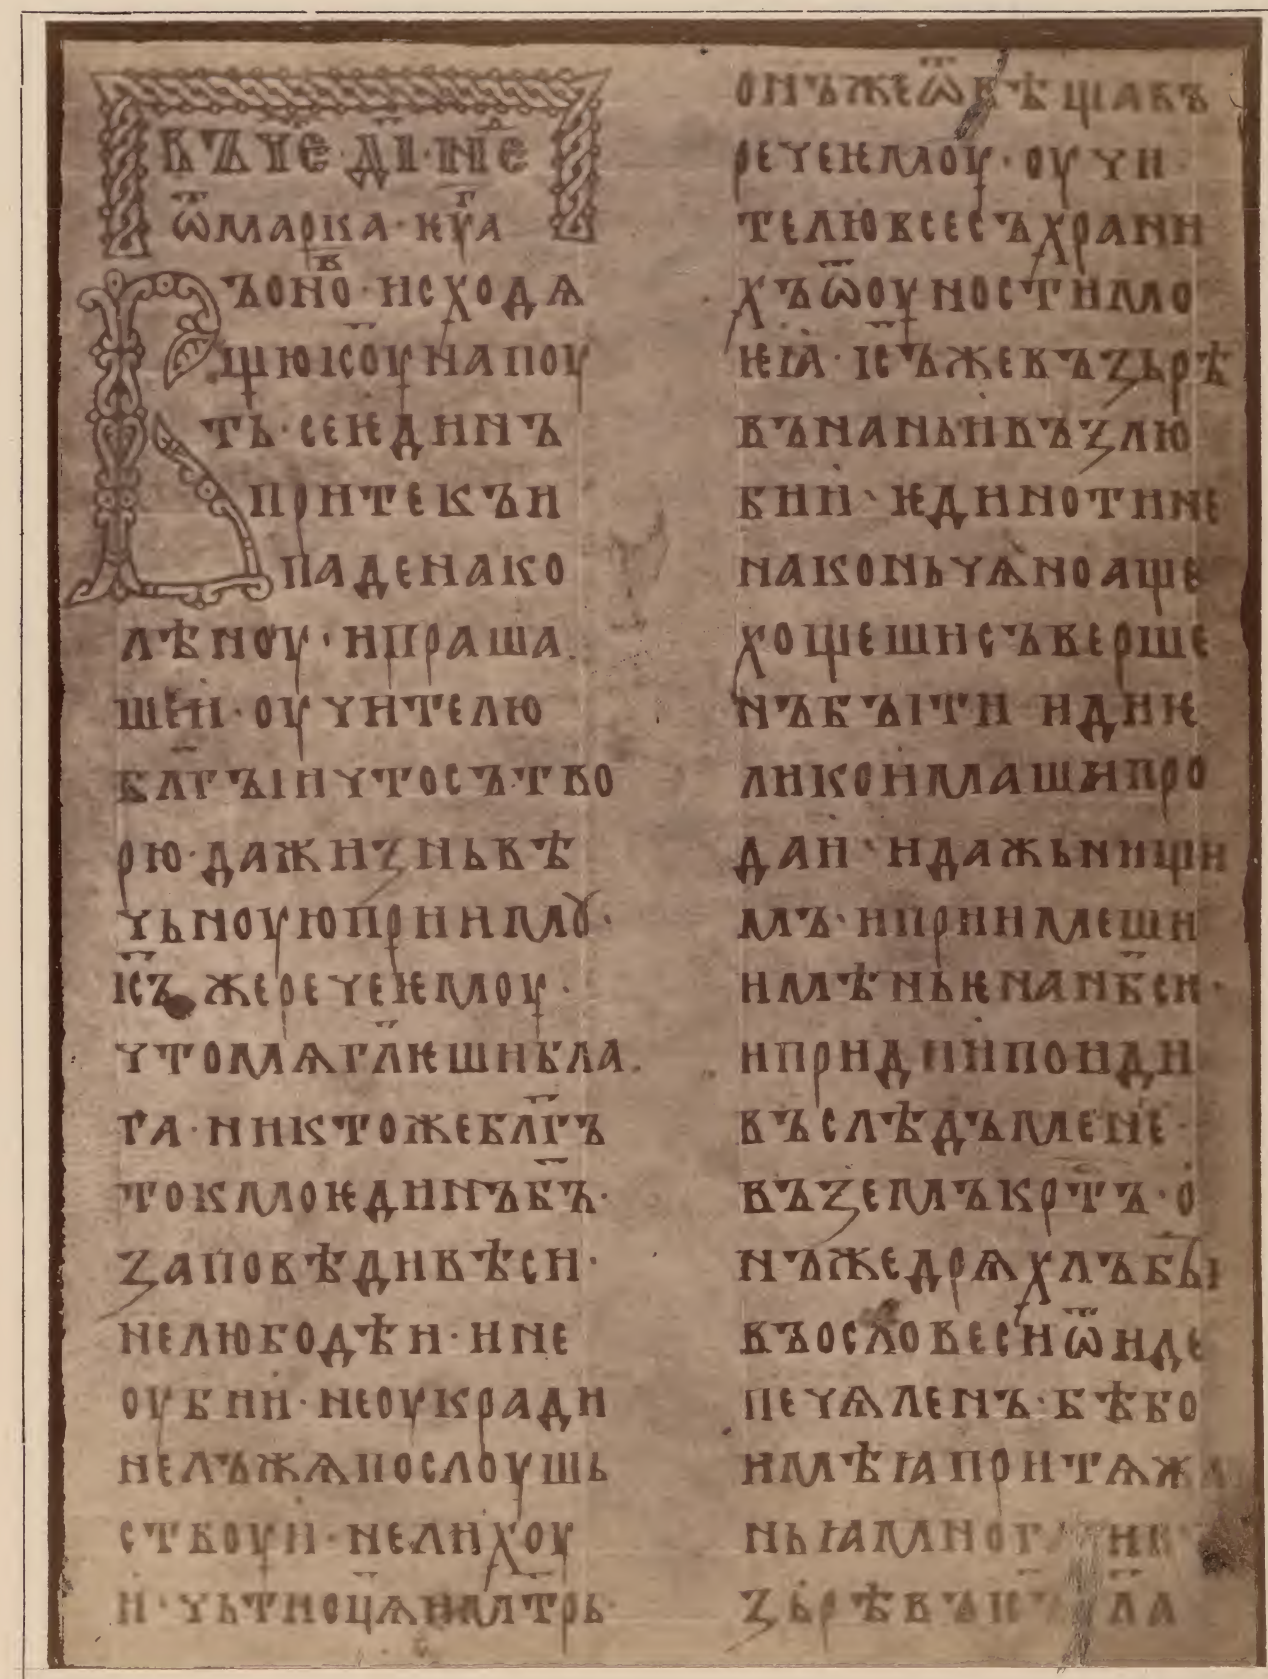 въ ч҃е · д҃і · нⷣе
ѿ марка · еуⷢа
Въ оноⷡ · исходѧ
щю і҃соу на поу
ть · се ѥдинъ
притекъ и
паде на ко
лѣноу · и праша
ше и · оучителю
бл҃гъıи что сътво
рю · да жизнь вѣ
чьноую приимꙋ ·
і҃съ же рече ѥмоу ·
что мѧ гл҃ѥши бла
га · никтоже бл҃гъ
токмо ѥдинъ б҃ъ ·
заповѣди вѣси ·
не любодѣи · и не
оубии · не оукради
не лъжѧ послоушь
ствоуи · не лихоу
и · чьти оц҃ѧ и м҃трь ·
онъ же ѿвѣщавъ
рече ѥмоу · оучи
телю все съхрани
хъ ѿ оуности мо
ѥıа · і҃съ же възьрѣ
въ на нь и възлю
би и · ѥдиного ти не
наконьчѧно аще
хощеши съверше
нъ бъıти иди ѥ
лико имаши про
даи · и дажь нищи
мъ · и приимеши
имѣньѥ на н҃бси ·
и приди и поиди
въ слѣдъ мене ·
въземъ крⷭтъ · о
нъ же дрѧхлъ бы
въ о словеси ѿиде
печѧленъ · бѣ бо
имѣıа притѧжа
ньıа многа и въ
зьрѣвъ і҃съ гл҃а